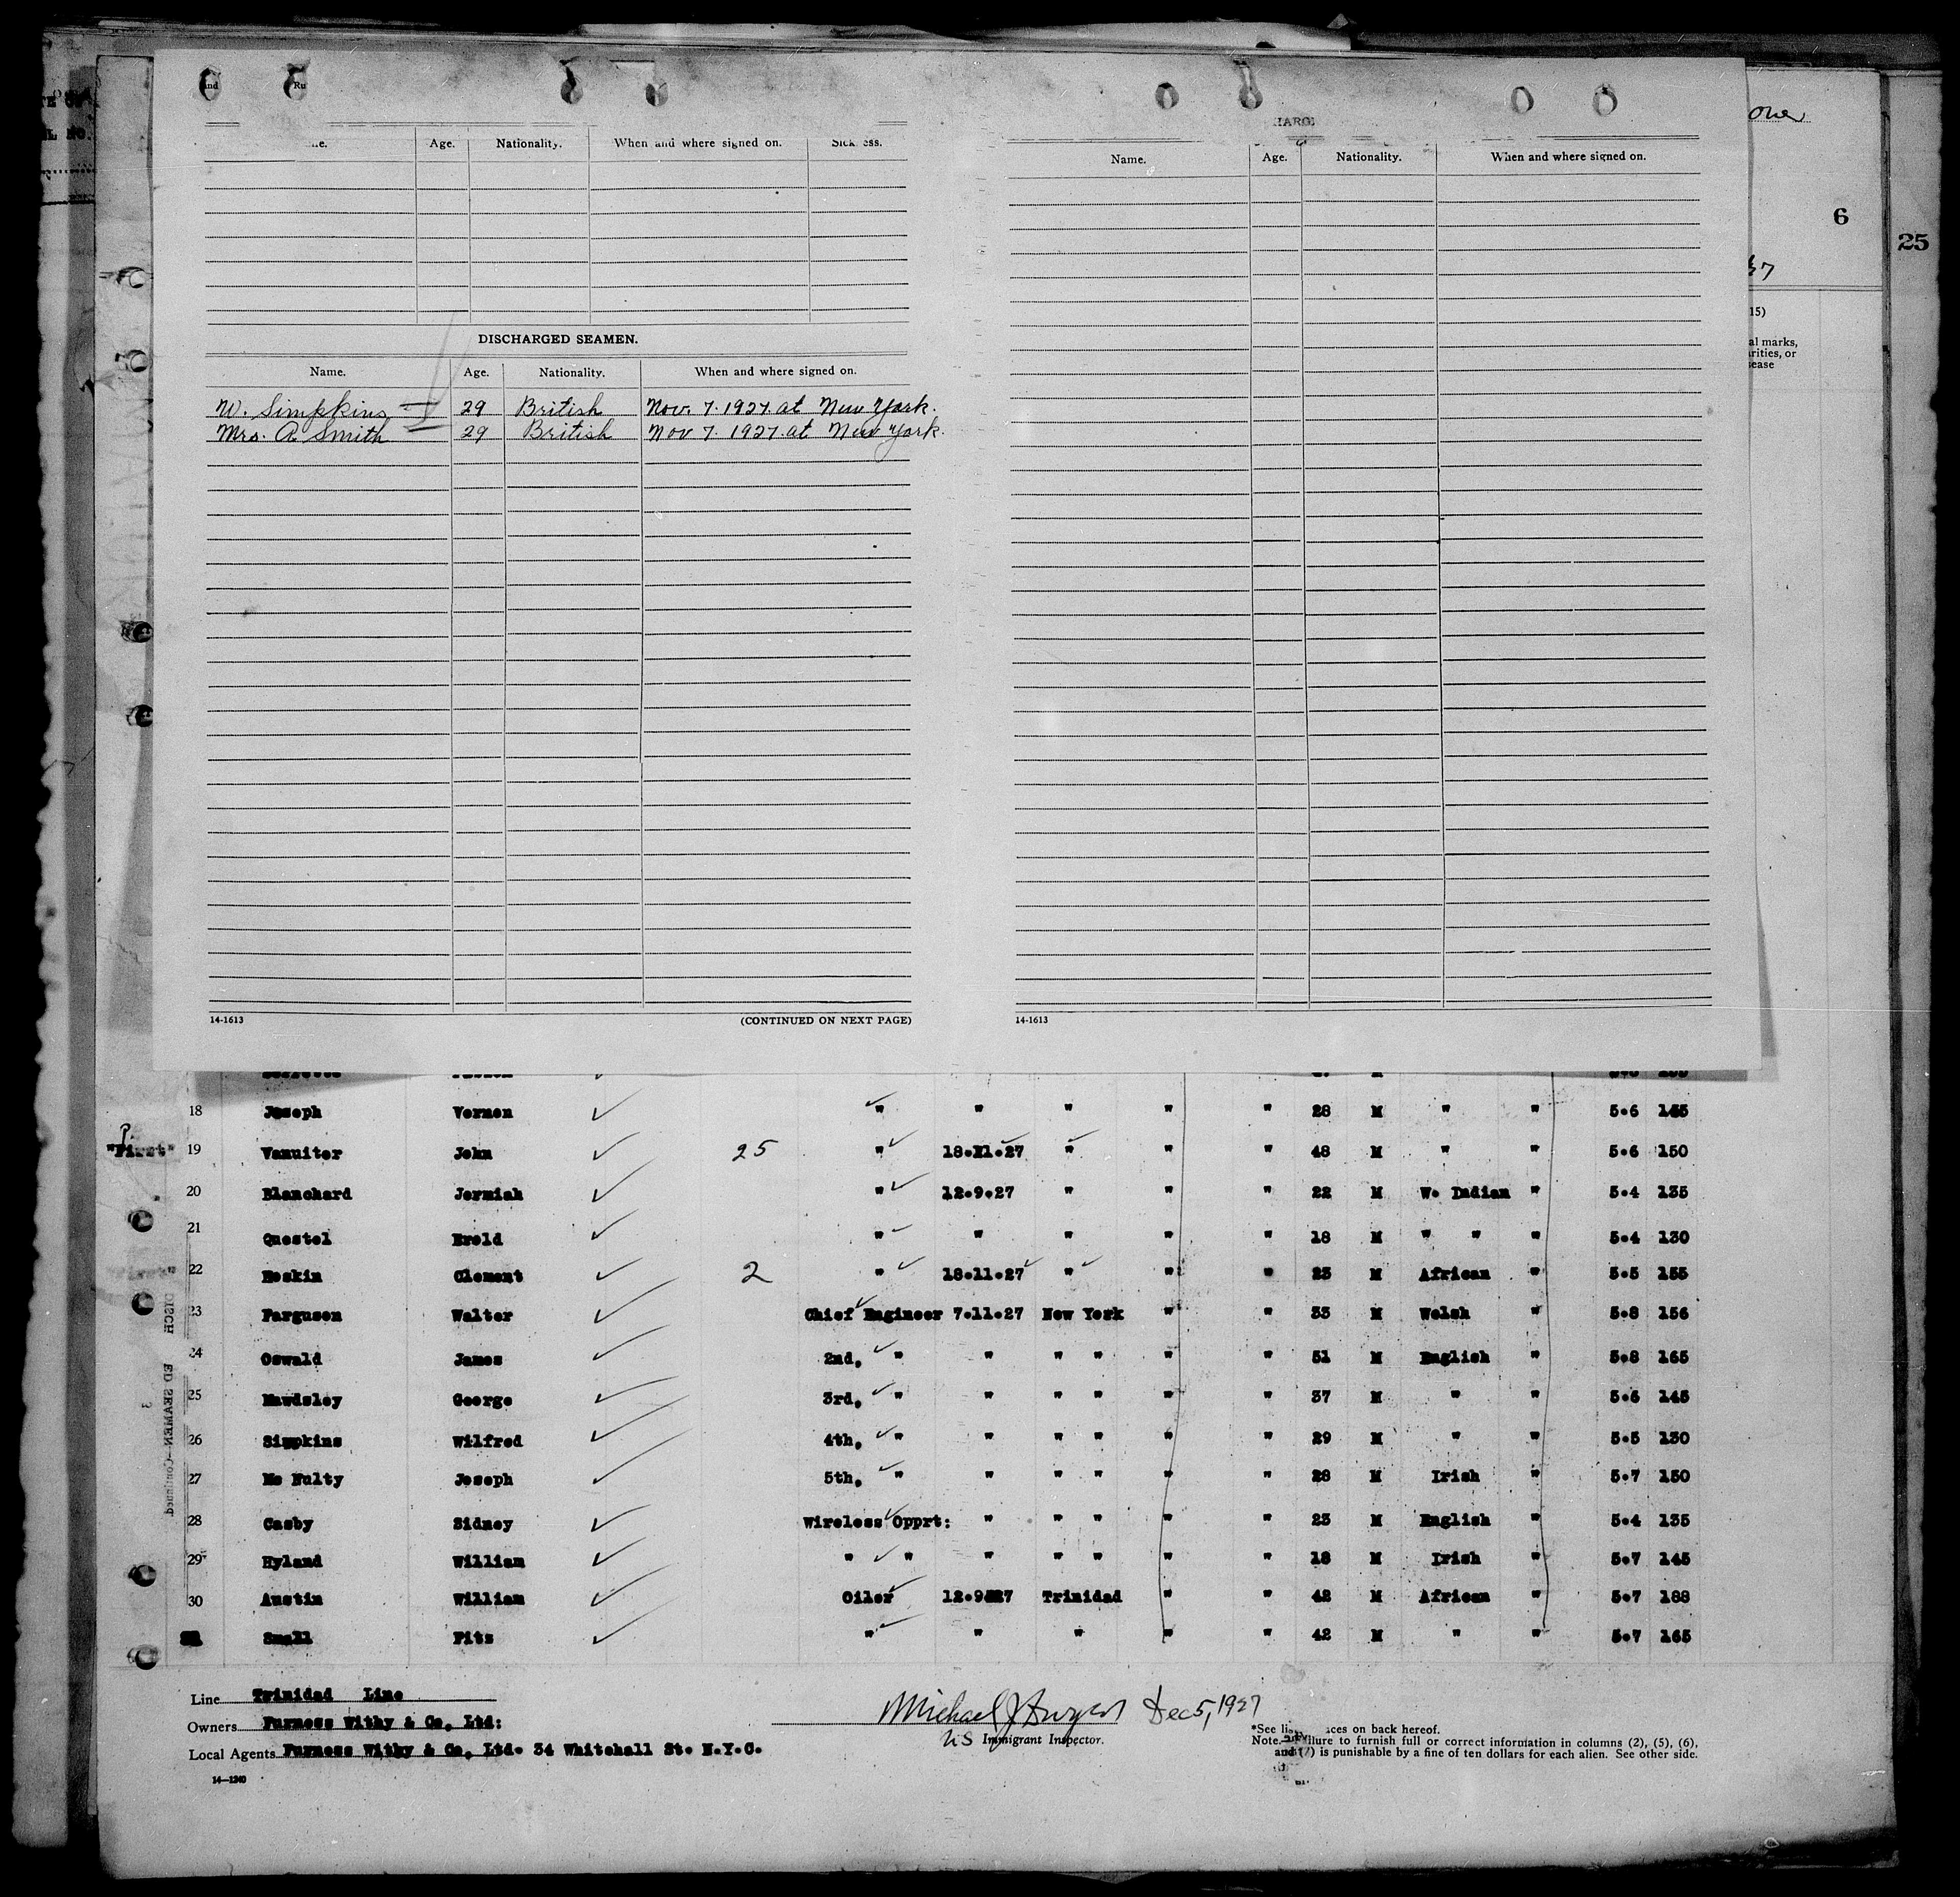 Age. Nationality. When and where signed on.
DISCHARGED SEAMEN.
Name. Age. Nationality. When and where signed on.
W. Simpkins 29 British Nov. 7. 1927. at New York.
Mrs. A Smith 29 British Nov 7. 1927. at New York.
14-1613 (CONTINUED ON NEXT PAGE)
Name. Age. Nationality. When and where signed on.
14-1613
6
25
15)
al marks,
arities, or
sease
18 Joseph Vernon " " " " " 28 M " " 5.6 155
"First" 19 Vanuiter John 25 " 18.11.27 " " " 48 M " " 5.6 150
20 Blanchard Jermiah " 12.9.27 " " " 22 M W. Indian " 5.4 135
21 Questel Erold " " " " " 18 M " " " 5.4 130
22 Hoskin Clement 2 " 18.11.27 " " " 23 M African " 5.5 155
23 Farguson Walter Chief Engineer 7.11.27 New York " " 33 M Welsh " 5.8 156
24 Oswald James 2nd, " " " " " " 51 M English " 5.8 165
25 Mawdsley George 3rd, " " " " " " 37 M " " 5.6 145
26 Simpkins Wilfred 4th, " " " " " " 29 M " " 5.5 130
27 Mc Nulty Joseph 5th, " " " " " " 28 M Irish " 5.7 150
28 Casby Sidney Wireless Opprt: " " " " " 23 M English " 5.4 135
29 Hyland William " " " " " " " 18 M Irish " 5.7 145
30 Austin William Oiler 12.9.27 Trinidad " " 42 M African " 5.7 188
Small Fitz " " " " " 42 M " " 5.7 165
Line Trinidad Line
Owners Furness Withy & Co, Ltd:
Local Agents Furness Withy & Co, Ltd. 34 Whitehall St. N.Y.C.
14—1240
Michael J Dwyer Dec 5, 1927
US Immigrant Inspector.
*See ces on back hereof.
Note. ilure to furnish full or correct information in columns (2), (5), (6),
and (7) is punishable by a fine of ten dollars for each alien. See other side.